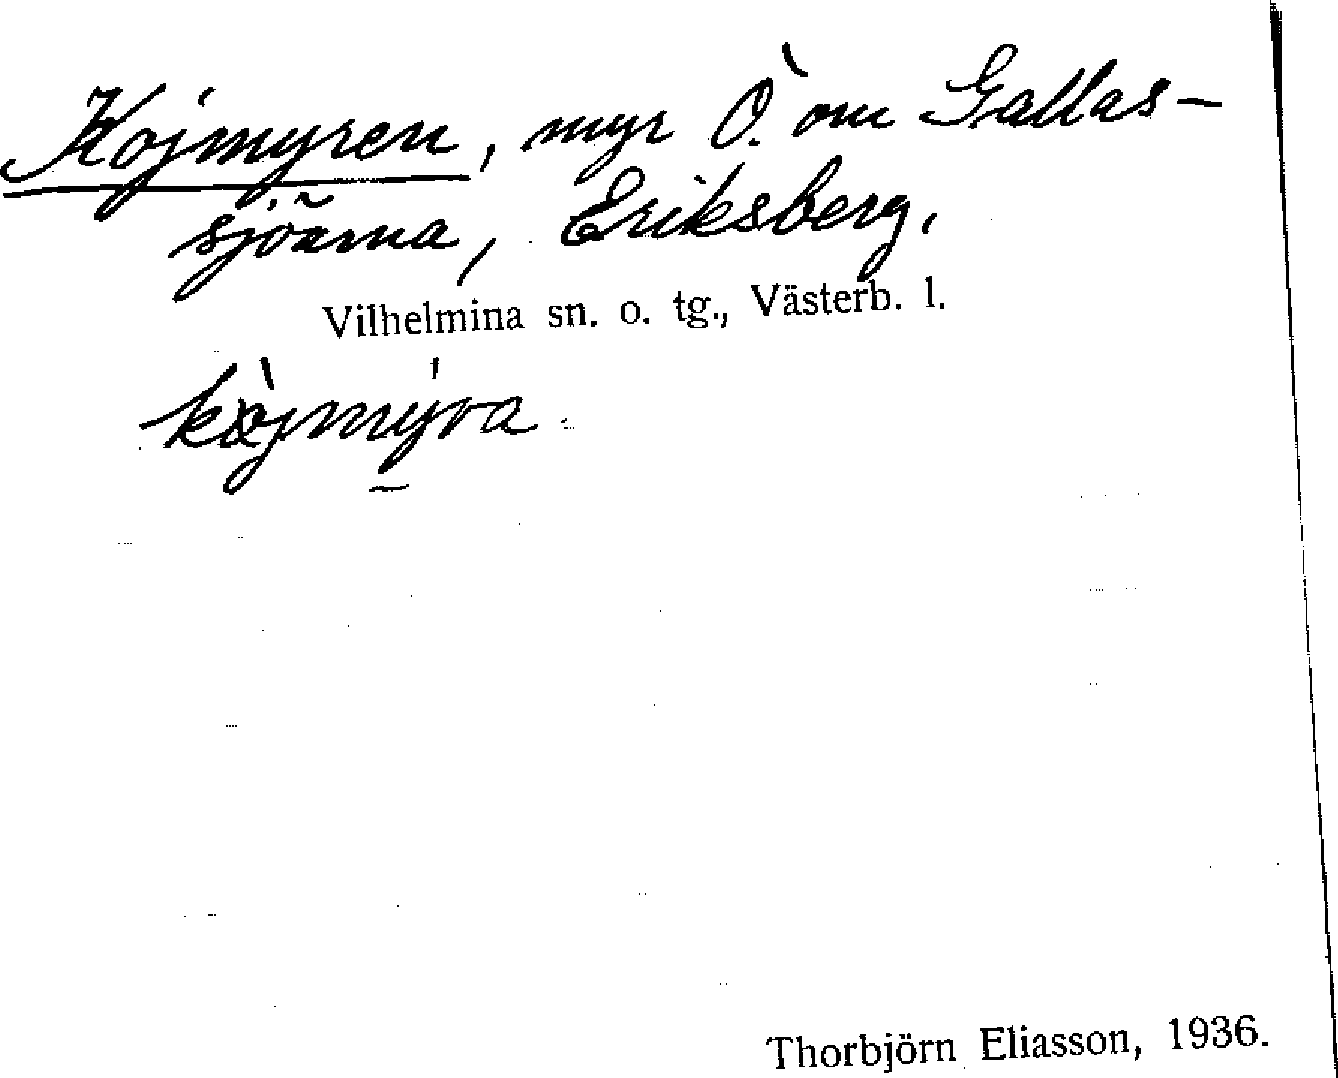 Kojmyren, myr Ö. om Gallas-
sjöarna, Eriksberg.
Vilhelmina sn. o. tg., Västerb. l.
Thorbjörn Eliasson, 1936.